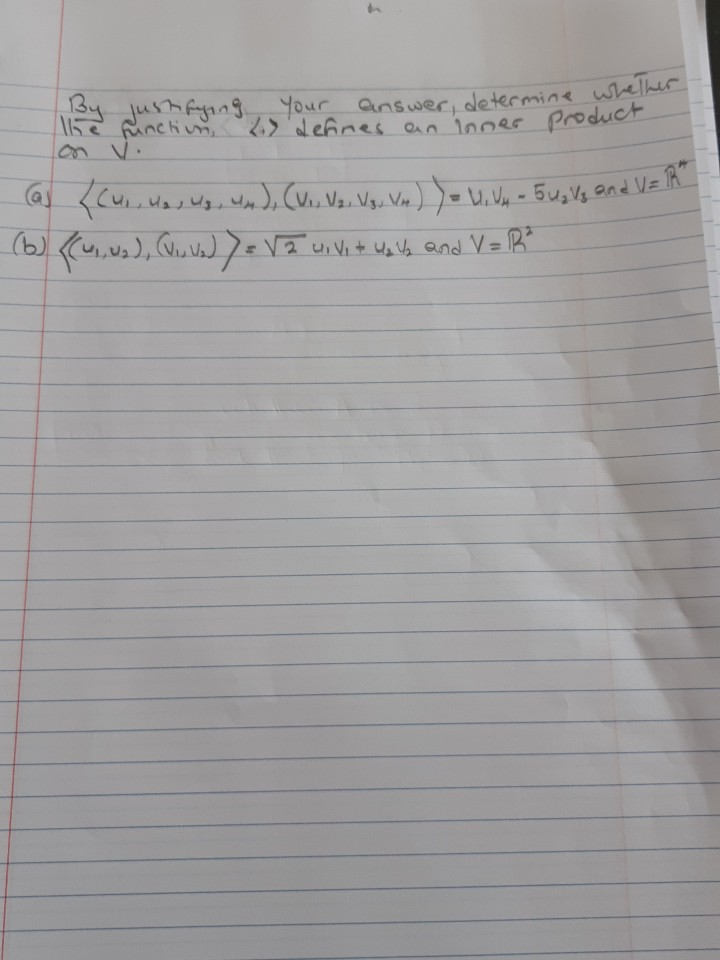 By justifying your answer, determine whether
the function, <,> defines an inner product
on V.
(a) ⟨(u₁, u₂, u₃, u₄), (v₁, v₂, v₃, v₄)⟩ = u₁v₄ - 5u₂v₃ and V = ℝ⁴
(b) ⟨(u₁, u₂), (v₁, v₂)⟩ = √2 u₁v₁ + u₂v₂ and V = ℝ²